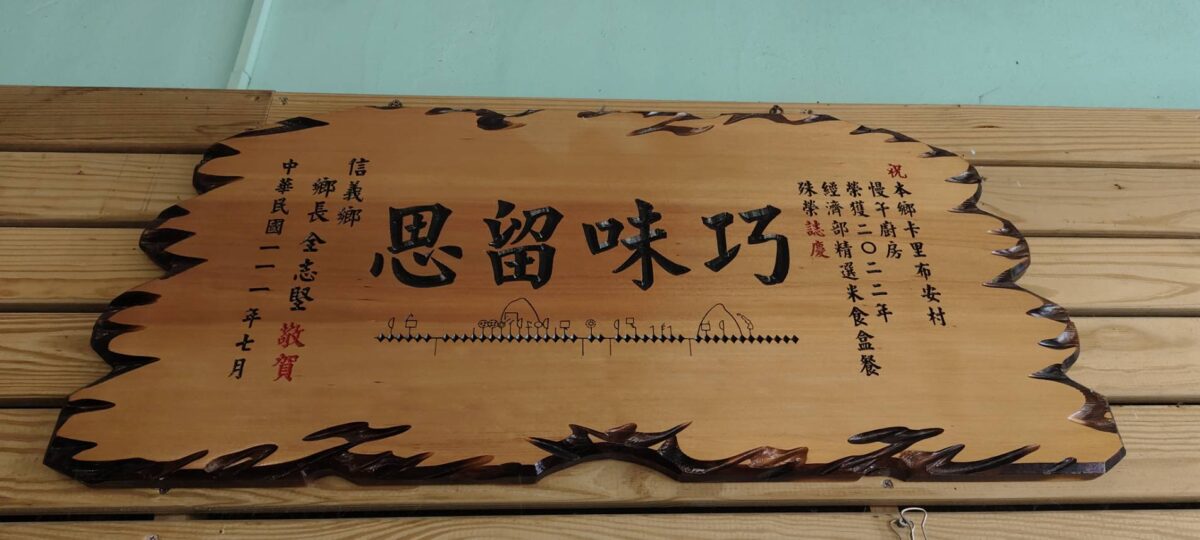 祝本鄉卡里布安村
慢午廚房
榮獲二〇二二年
經濟部精選米食盒餐
殊榮誌慶
巧味留思
信義鄉
鄉長全志堅敬賀
中華民國一一一年七月